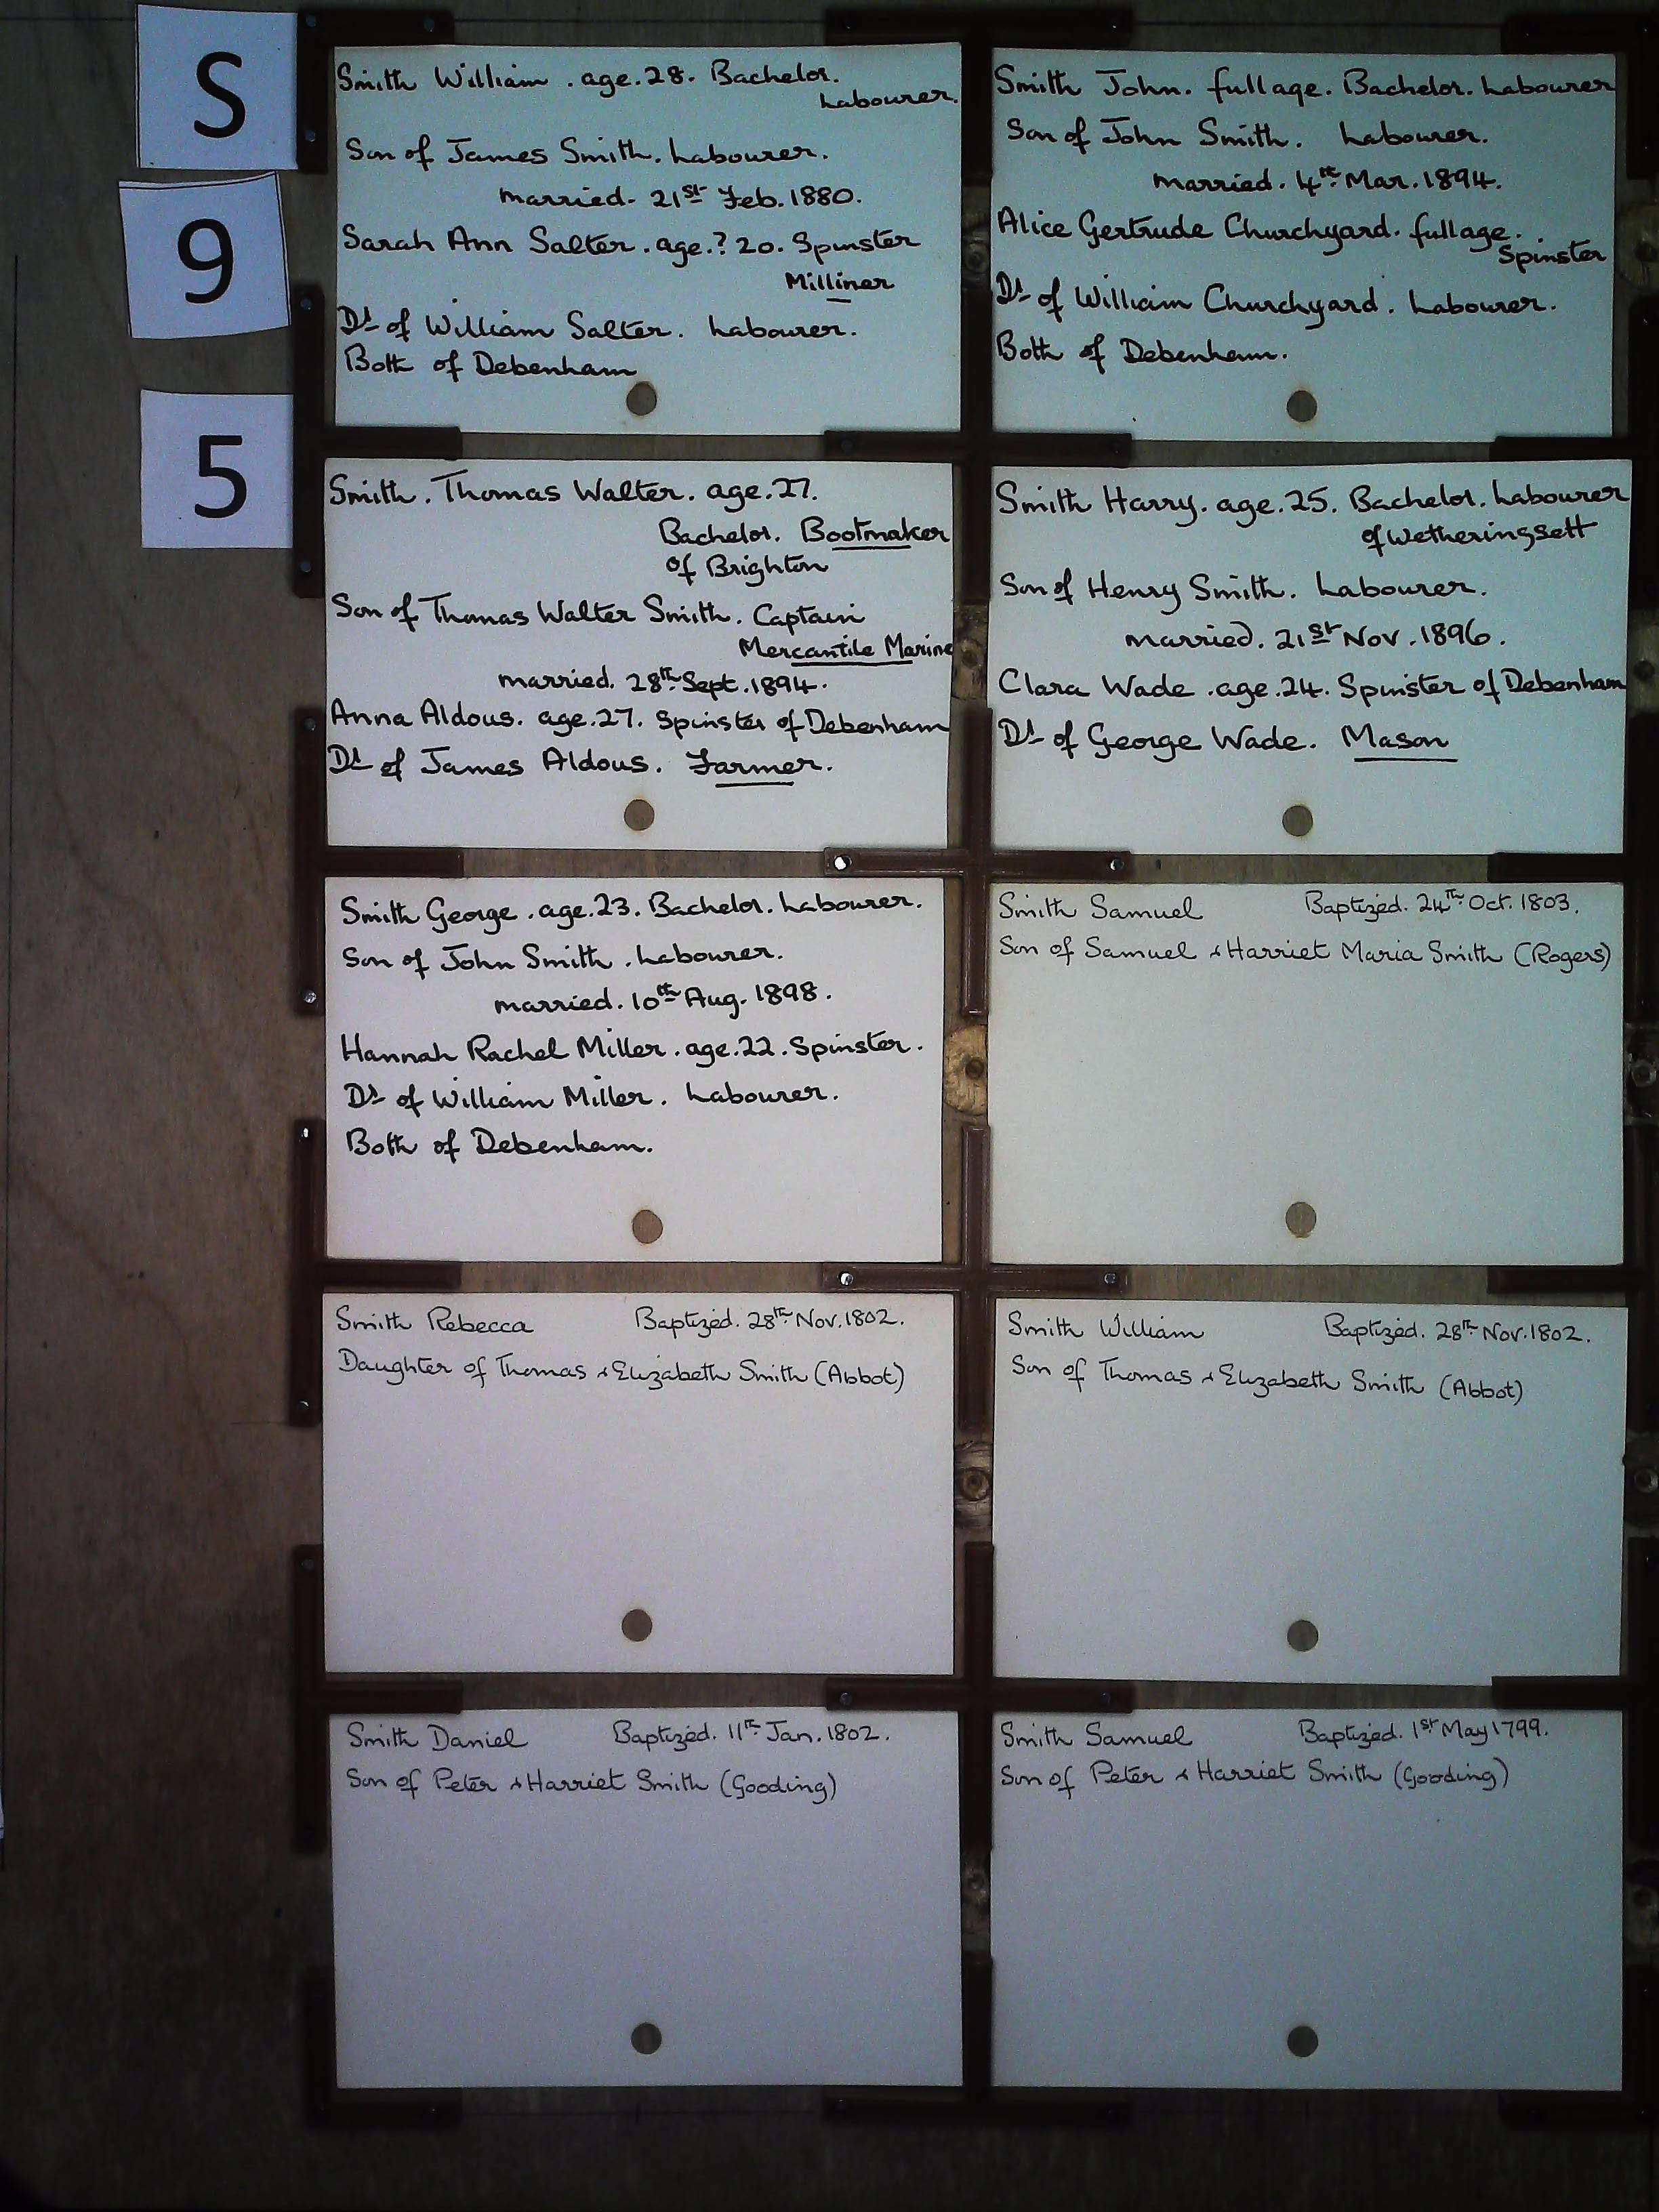 S
9
5
Smith William . age . 28 . Bachelor.
Labourer.
Son of James Smith . Labourer.
married - 21st Feb. 1880.
Sarah Ann Salter . age . ? 20 . Spinster
Milliner
Dr of William Salter . Labourer.
Both of Debenham
Smith John . full age . Bachelor . Labourer
Son of John Smith . Labourer.
married . 4th Mar . 1894.
Alice Gertrude Churchyard . full age .
Spinster
Dr of William Churchyard . Labourer.
Both of Debenham.
Smith . Thomas Walter . age . 27.
Bachelor . Bootmaker
of Brighton
Son of Thomas Walter Smith . Captain
Mercantile Marine
married . 28th Sept . 1894.
Anna Aldous . age . 27 . Spinster of Debenham
Dr of James Aldous . Farmer.
Smith Harry . age . 25 . Bachelor . Labourer
of Wetheringsett
Son of Henry Smith . Labourer.
married . 21st Nov . 1896.
Clara Wade . age . 24 . Spinster of Debenham
Dr of George Wade . Mason
Smith George . age . 23 . Bachelor . Labourer.
Son of John Smith . Labourer.
married . 10th Aug . 1898.
Hannah Rachel Miller . age . 22 . Spinster.
Dr of William Miller . Labourer.
Both of Debenham.
Smith Samuel Baptized . 24th Oct . 1803.
Son of Samuel & Harriet Maria Smith (Rogers)
Smith Rebecca Baptized . 28th Nov . 1802.
Daughter of Thomas & Elizabeth Smith (Abbot)
Smith William Baptized . 28th Nov . 1802.
Son of Thomas & Elizabeth Smith (Abbot)
Smith Daniel Baptized . 11th Jan . 1802.
Son of Peter & Harriet Smith (Gooding)
Smith Samuel Baptized . 1st May 1799.
Son of Peter & Harriet Smith (Gooding)